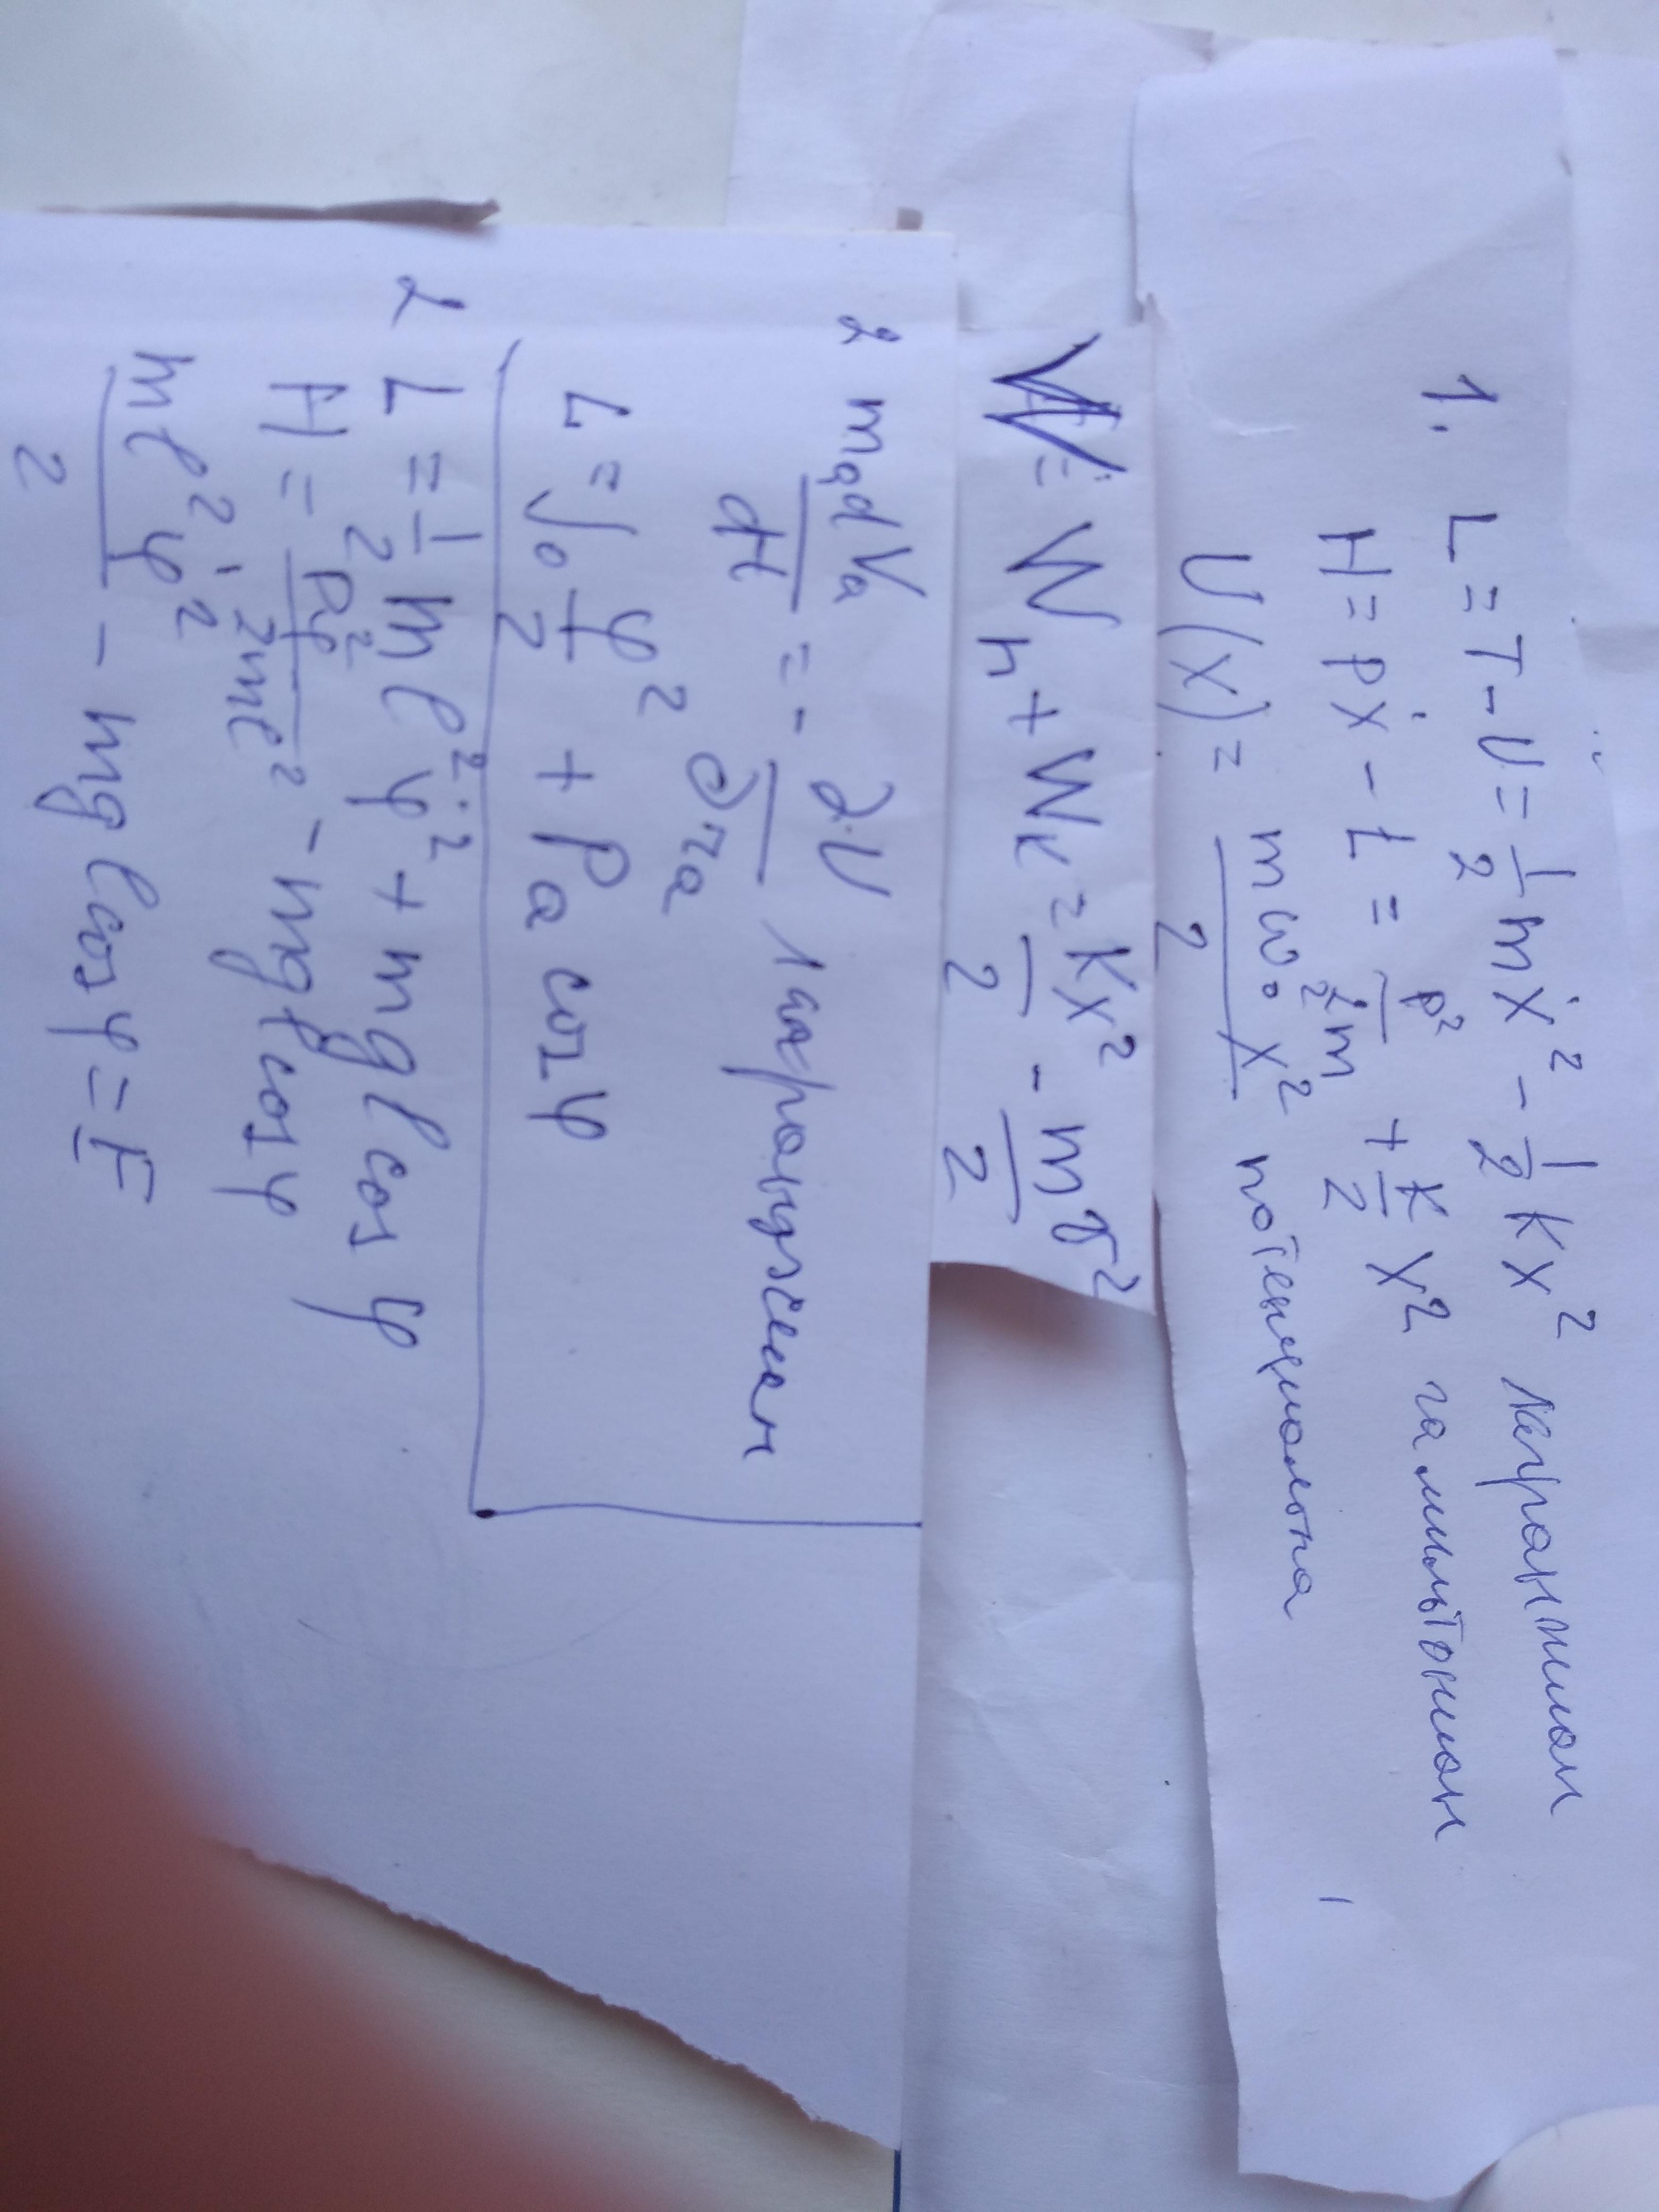 1. L = T - U = 1/2 mẋ² - 1/2 kx² лагранжиан
H = pẋ - L = p²/2m + k/2 x2 гамильтониан
U(x) = mω₀²x²/2 потенциальна
W = Wп + Wк = kx²/2 - mv²/2
2 mₐdVₐ/dt = - ∂U/∂rₐ лагранжиан
L = J₀/2 φ² + Pa cosφ
2 L = 1/2 ml²φ̇² + mgl cosφ
H = Pφ²/2ml² - mgl cosφ
ml²φ̇²/2 - mgl cosφ = E